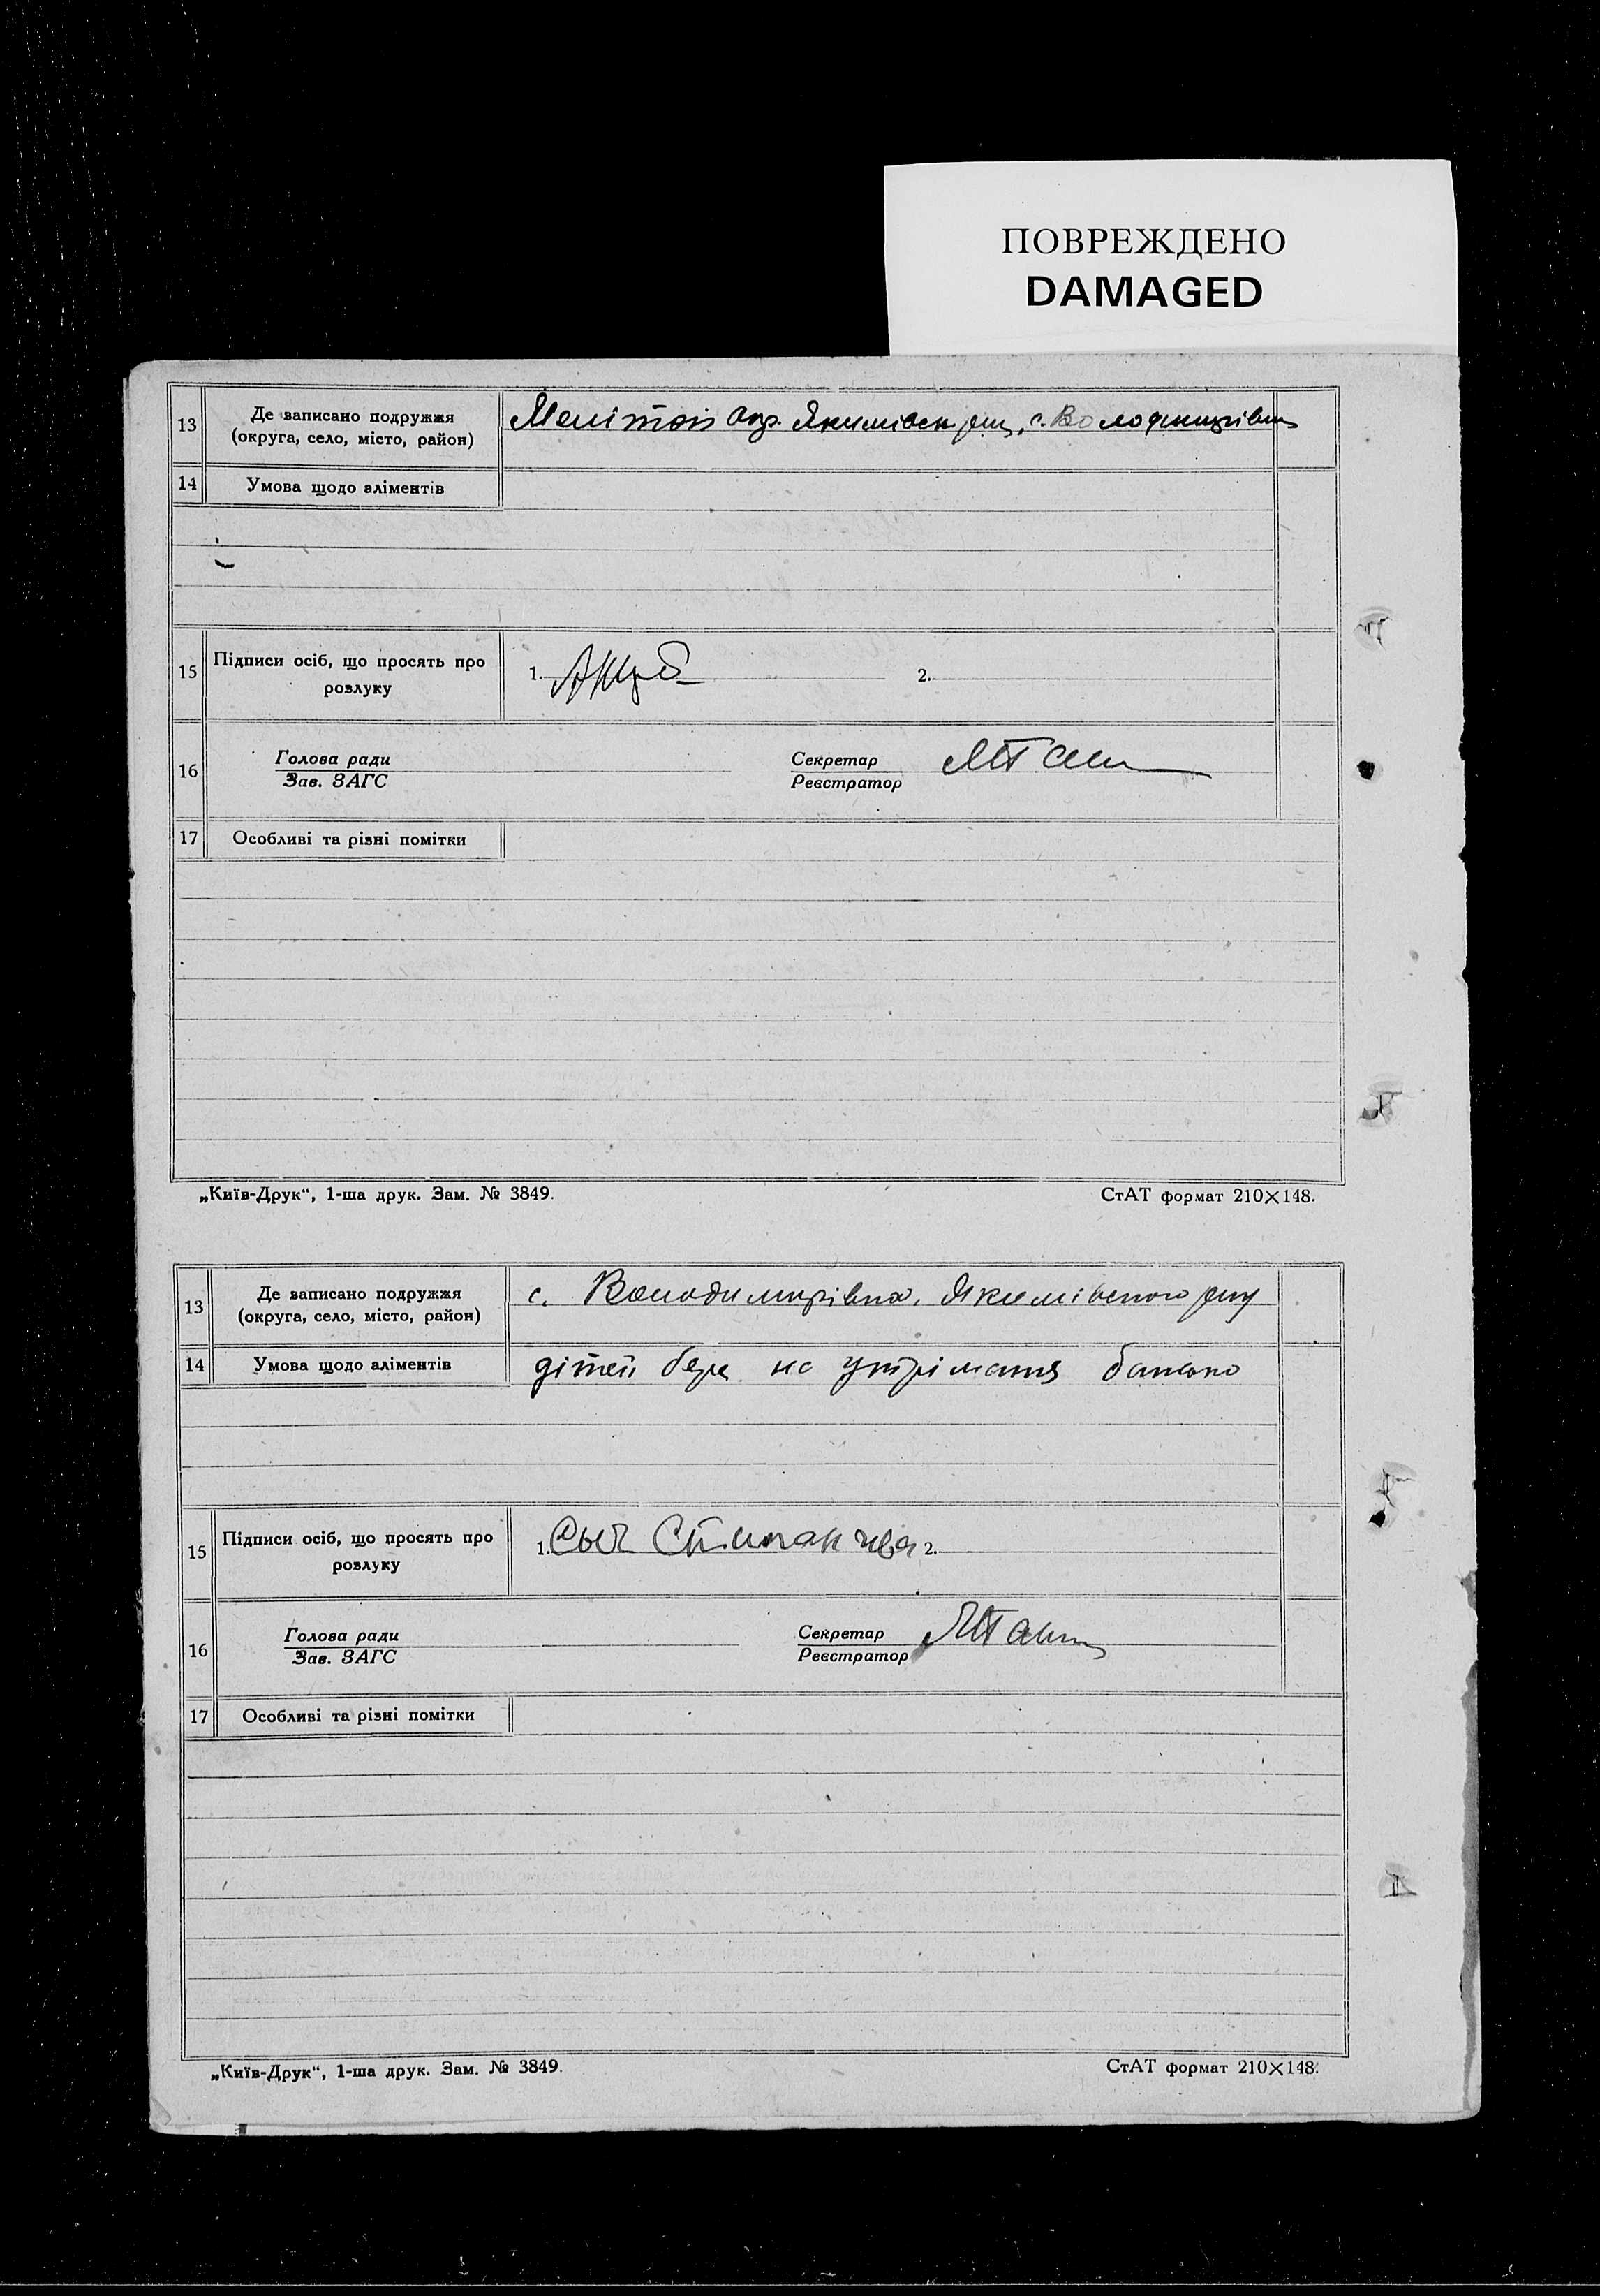 ПОВРЕЖДЕНО
DAMAGED
13 Де записано подружжя
(округа, село, місто, район)
Мелітоп окр. Якимівськ рну, с. Володимирівка
14 Умова щодо аліментів
15 Підписи осіб, що просять про
розлуку
1. 2.
16 Голова ради
Зав. ЗАГС
Секретар
Реєстратор
17 Особливі та різні помітки
„Київ-Друк“, 1-ша друк. Зам. № 3849.
СтАТ формат 210×148.
13 Де записано подружжя
(округа, село, місто, район)
с. Володимирівка, Якимівського рну
14 Умова щодо аліментів
дітей бере на утрімання батько
15 Підписи осіб, що просять про
розлуку
1. Сыч 2.
16 Голова ради
Зав. ЗАГС
Секретар
Реєстратор
17 Особливі та різні помітки
„Київ-Друк“, 1-ша друк. Зам. № 3849.
СтАТ формат 210×148.